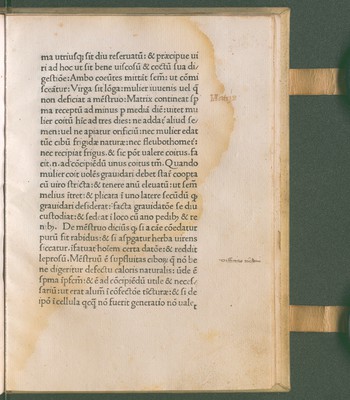 ma utriusqʒ sit diu reseruatū: & præcipue ui
ri ad hoc ut sit bene uiscosū & coctū sua di/
gestiōe: Ambo coeūtes mittāt sem̄: ut cōmi
sceātur: Virga sit lōga: mulier iuuenis uel q̄
non deficiat a mēstruo: Matrix contineat sp
ma receptū ad minus p mediā diē: uitet mu
lier coitū hīc ad tres dies: ne addat aliud se/
men: uel ne apiatur orificiū: nec mulier edat
tūc cibū frigidæ naturæ: nec fleubothomet:
nec recipiat frigus. & sic pōt ualere coitus fa
cit. n. ad cōcipiēdū unus coitus tm̄. Quando
mulier coit uolēs grauidari debet stať coopta
cū uiro stricta: & tenere anū eleuatū: ut sem̄
melius itret: & plicata ī uno latere secūdū q̄
grauidari desiderat: facta grauidatōe se diu
custodiat: & sedeat ī loco cū ano pedibʒ & re
nibʒ. De mēstruo dicius qʒ si a cāe cōedatur
purū fit rabidus: & si aspgatur herba uirens
siccatur. īfatuat hoīem certa datōe: & reddit
leprosū. Mēstruū ē supfluitas cibor̄ q̄ nō be
ne digeritur defectu caloris naturalis: utīle ē
spma īpsem̄: & ē ad cōcipiēdū utile & neces/
sariū ut erat alum̄ ī cōfectōe tīcturæ: & si de
ipō ī cellula qcq̄ nō fuerit generatio nō ualet